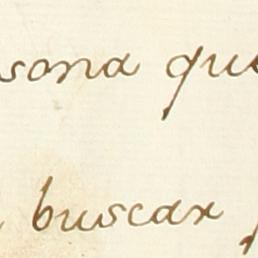 sona que
buscar